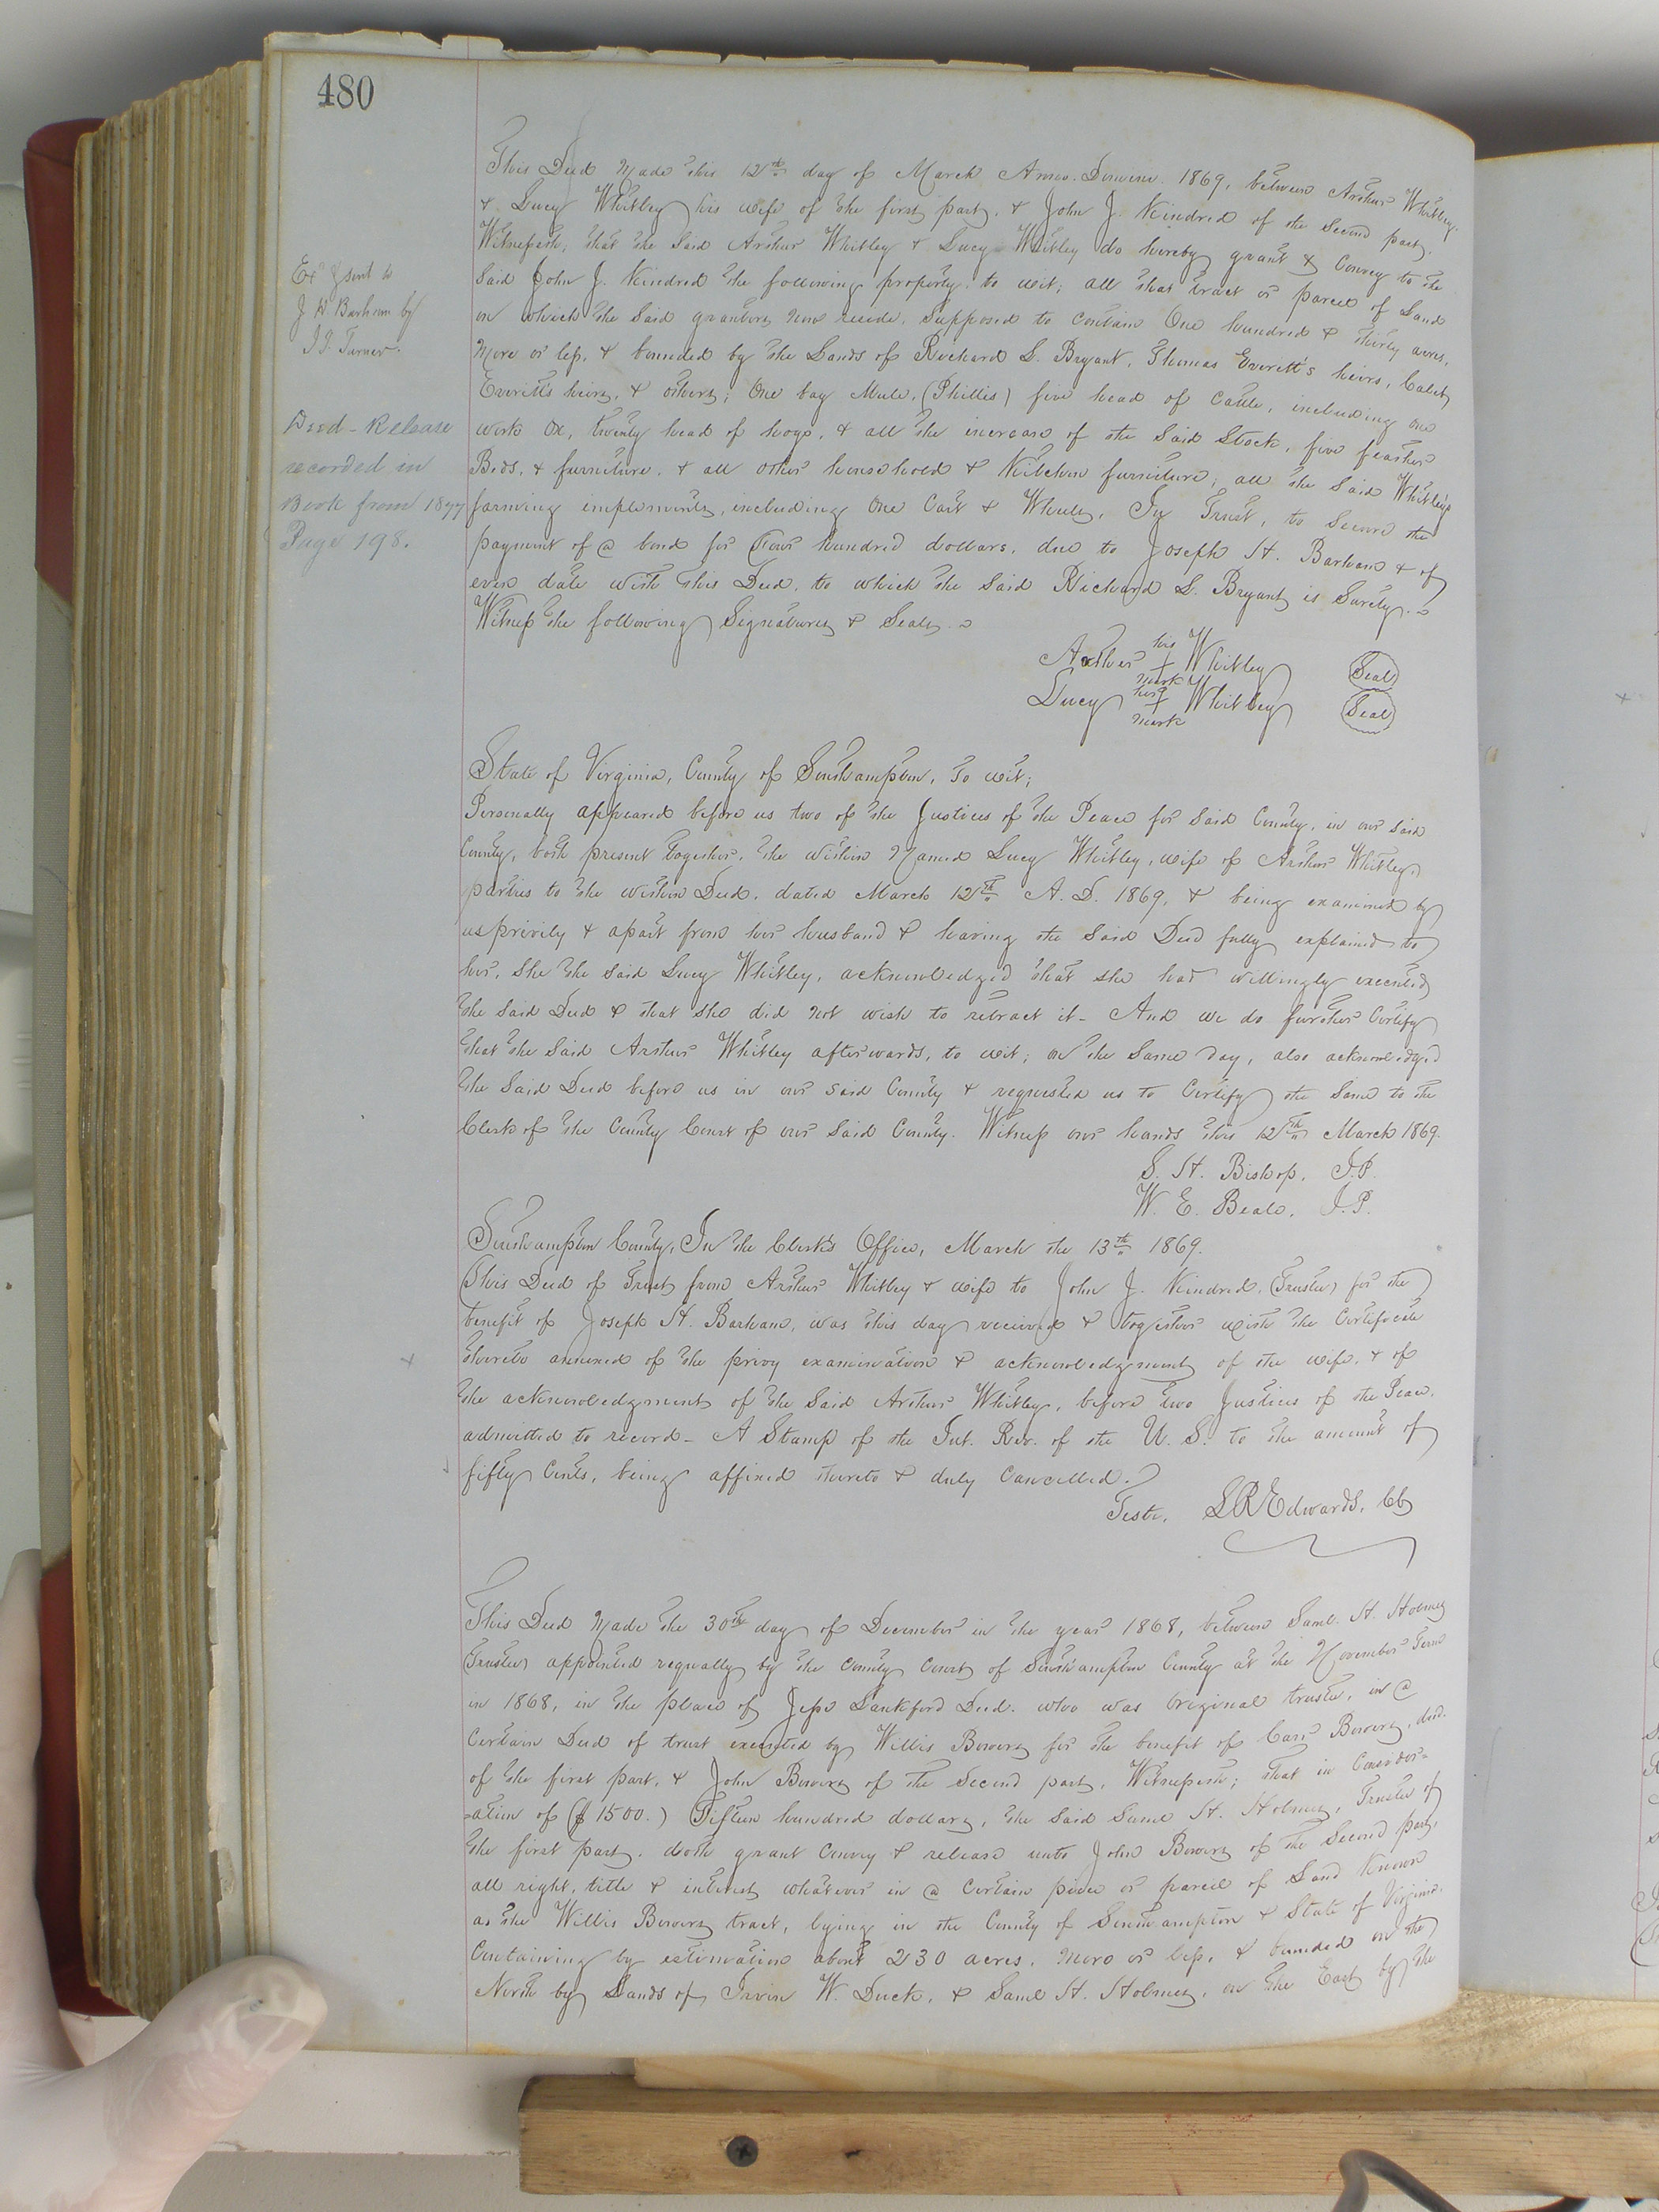 480
This Deed Made this 12th day of March Anno. Domini. 1869, between Arthur Whitley
& Lucy Whitley his wife of the first part, & John J. Kindred of the Second part,
Witnesseth; that the Said Arthur Whitley & Lucy Whitley do hereby grant & Convey to the
Said John J. Kindred the following property, to wit; all that tract or parcel of Land
on which the Said grantors now reside, Supposed to Contain One hundred & thirty acres,
More or less, & bounded by the Lands of Richard S. Bryant, Thomas Everett's heirs, Caleb
Everitts heirs, & others; One bay Mule, (Phillis) five head of Cattle, including one
work Ox, twenty head of hogs, & all the increase of the Said Stock, five feather
Beds, & furniture, & all other household & Kitchen furniture; all the Said Whitley's
farming implements, including One Cart & Wheels, In Trust, to Secure the
payment of a bond for Four hundred dollars, due to Joseph H. Barham & of
even date with this Deed, to which the Said Richard S. Bryant is Surety.
Witness the following Signatures & Seals.
Arthur his + mark Whitley Seal
Lucy her + mark Whitley Seal
Ex'd & sent to
J H Barham by
J. J. Turner.
Deed-Release
recorded in
Book from 1877
Page 198.
State of Virginia, County of Southampton, to wit;
Personally appeared before us two of the Justices of the Peace for Said County, in our Said
County, both present together, the within Named Lucy Whitley, wife of Arthur Whitley,
parties to the within Deed, dated March 12th A. D. 1869, & being examined by
us privily & apart from her husband & having the Said Deed fully explained to
her, She the said Lucy Whitley, acknowledged that she had willingly executed
the Said Deed & that she did not wish to retract it- And we do further Certify
that the Said Arthur Whitley afterwards, to wit; on the Same day, also acknowledged
the Said Deed before us in our said County & requested us to Certify the Same to the
Clerk of the County Court of our Said County. Witness our hands this 12th March 1869.
S. H. Bishop, J.P.
W. E. Beale, J.P.
Southampton County, In the Clerk's Office, March the 13th 1869.
This Deed of Trust from Arthur Whitley & wife to John J. Kindred, (Trustee) for the
benefit of Joseph H. Barham, was this day received & together with the Certificate
thereto annexed of the privy examination & acknowledgment of the wife, & of
the acknowledgment of the Said Arthur Whitley, before two Justices of the Peace,
admitted to record- A Stamp of the Int. Rev. of the U. S. to the amount of
fifty Cents, being affixed thereto & duly Cancelled.
Teste, L R Edwards, CC
This Deed Made the 30th day of December in the year 1868, between Saml. H. Holmes
(Trustee) appointed regually by the County Court of Southampton County at the November Term
in 1868, in the place of Jess Lankford Decd. who was Original trustee, in a
Certain Deed of trust executed by Willis Bowers for the benefit of Carr Bowers, decd.
of the first part, & John Bowers of the Second part, Witnesseth; that in Consider-
-ation of ($ 1500.) Fifteen hundred dollars, the Said Saml H. Holmes, Trustee of
the first part, doth grant Convey & release unto John Bowers of the Second part,
all right, title & interest whatever in a Certain piece or parcel of Land Known
as the Willis Bowers tract, lying in the County of Southampton & State of Virginia.
Containing by estimation about 230 acres, More or less, & bounded on the
North by Lands of Irvin W. Duck, & Saml H. Holmes, on the East by the